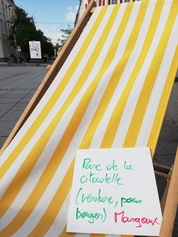 Parc de la
citadelle
(verdure, pour
bouger) Margaux